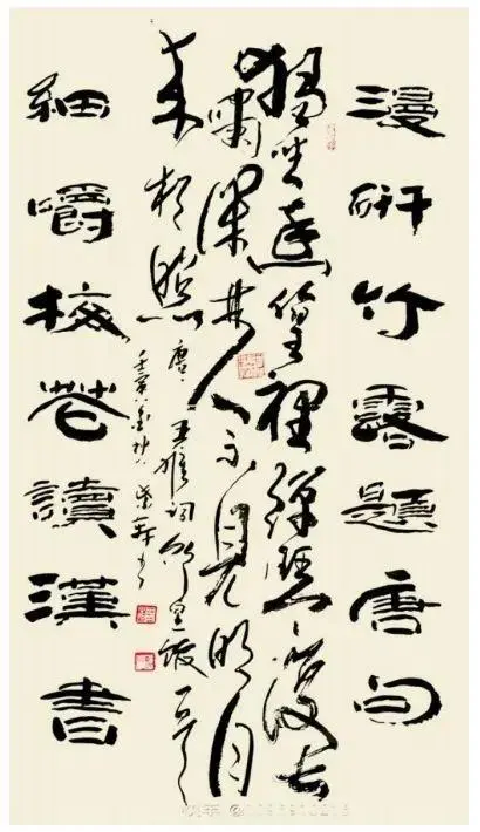 漫研竹露題唐句
獨坐幽篁裡彈琴復長
嘯深林人不見明月
來相照 唐 王維詞
壬寅
細嚼梅花讀漢書